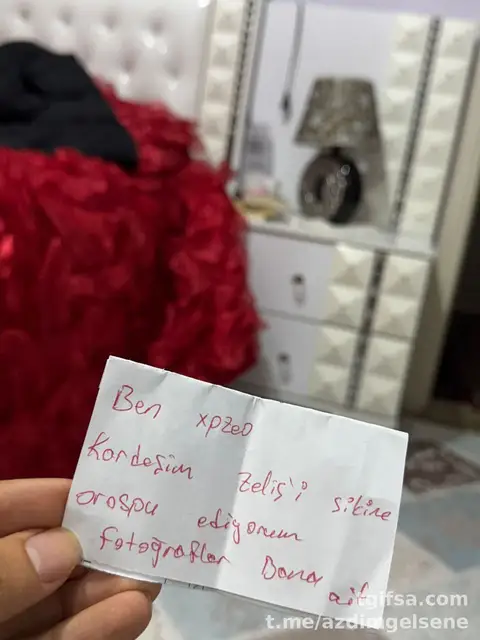 Ben xpzeo
Kardeşim Zeliş'i sikime
orospu ediyorum
fotoğraflar Bana ait
ifgifsa.com
t.me/azdimgelsene